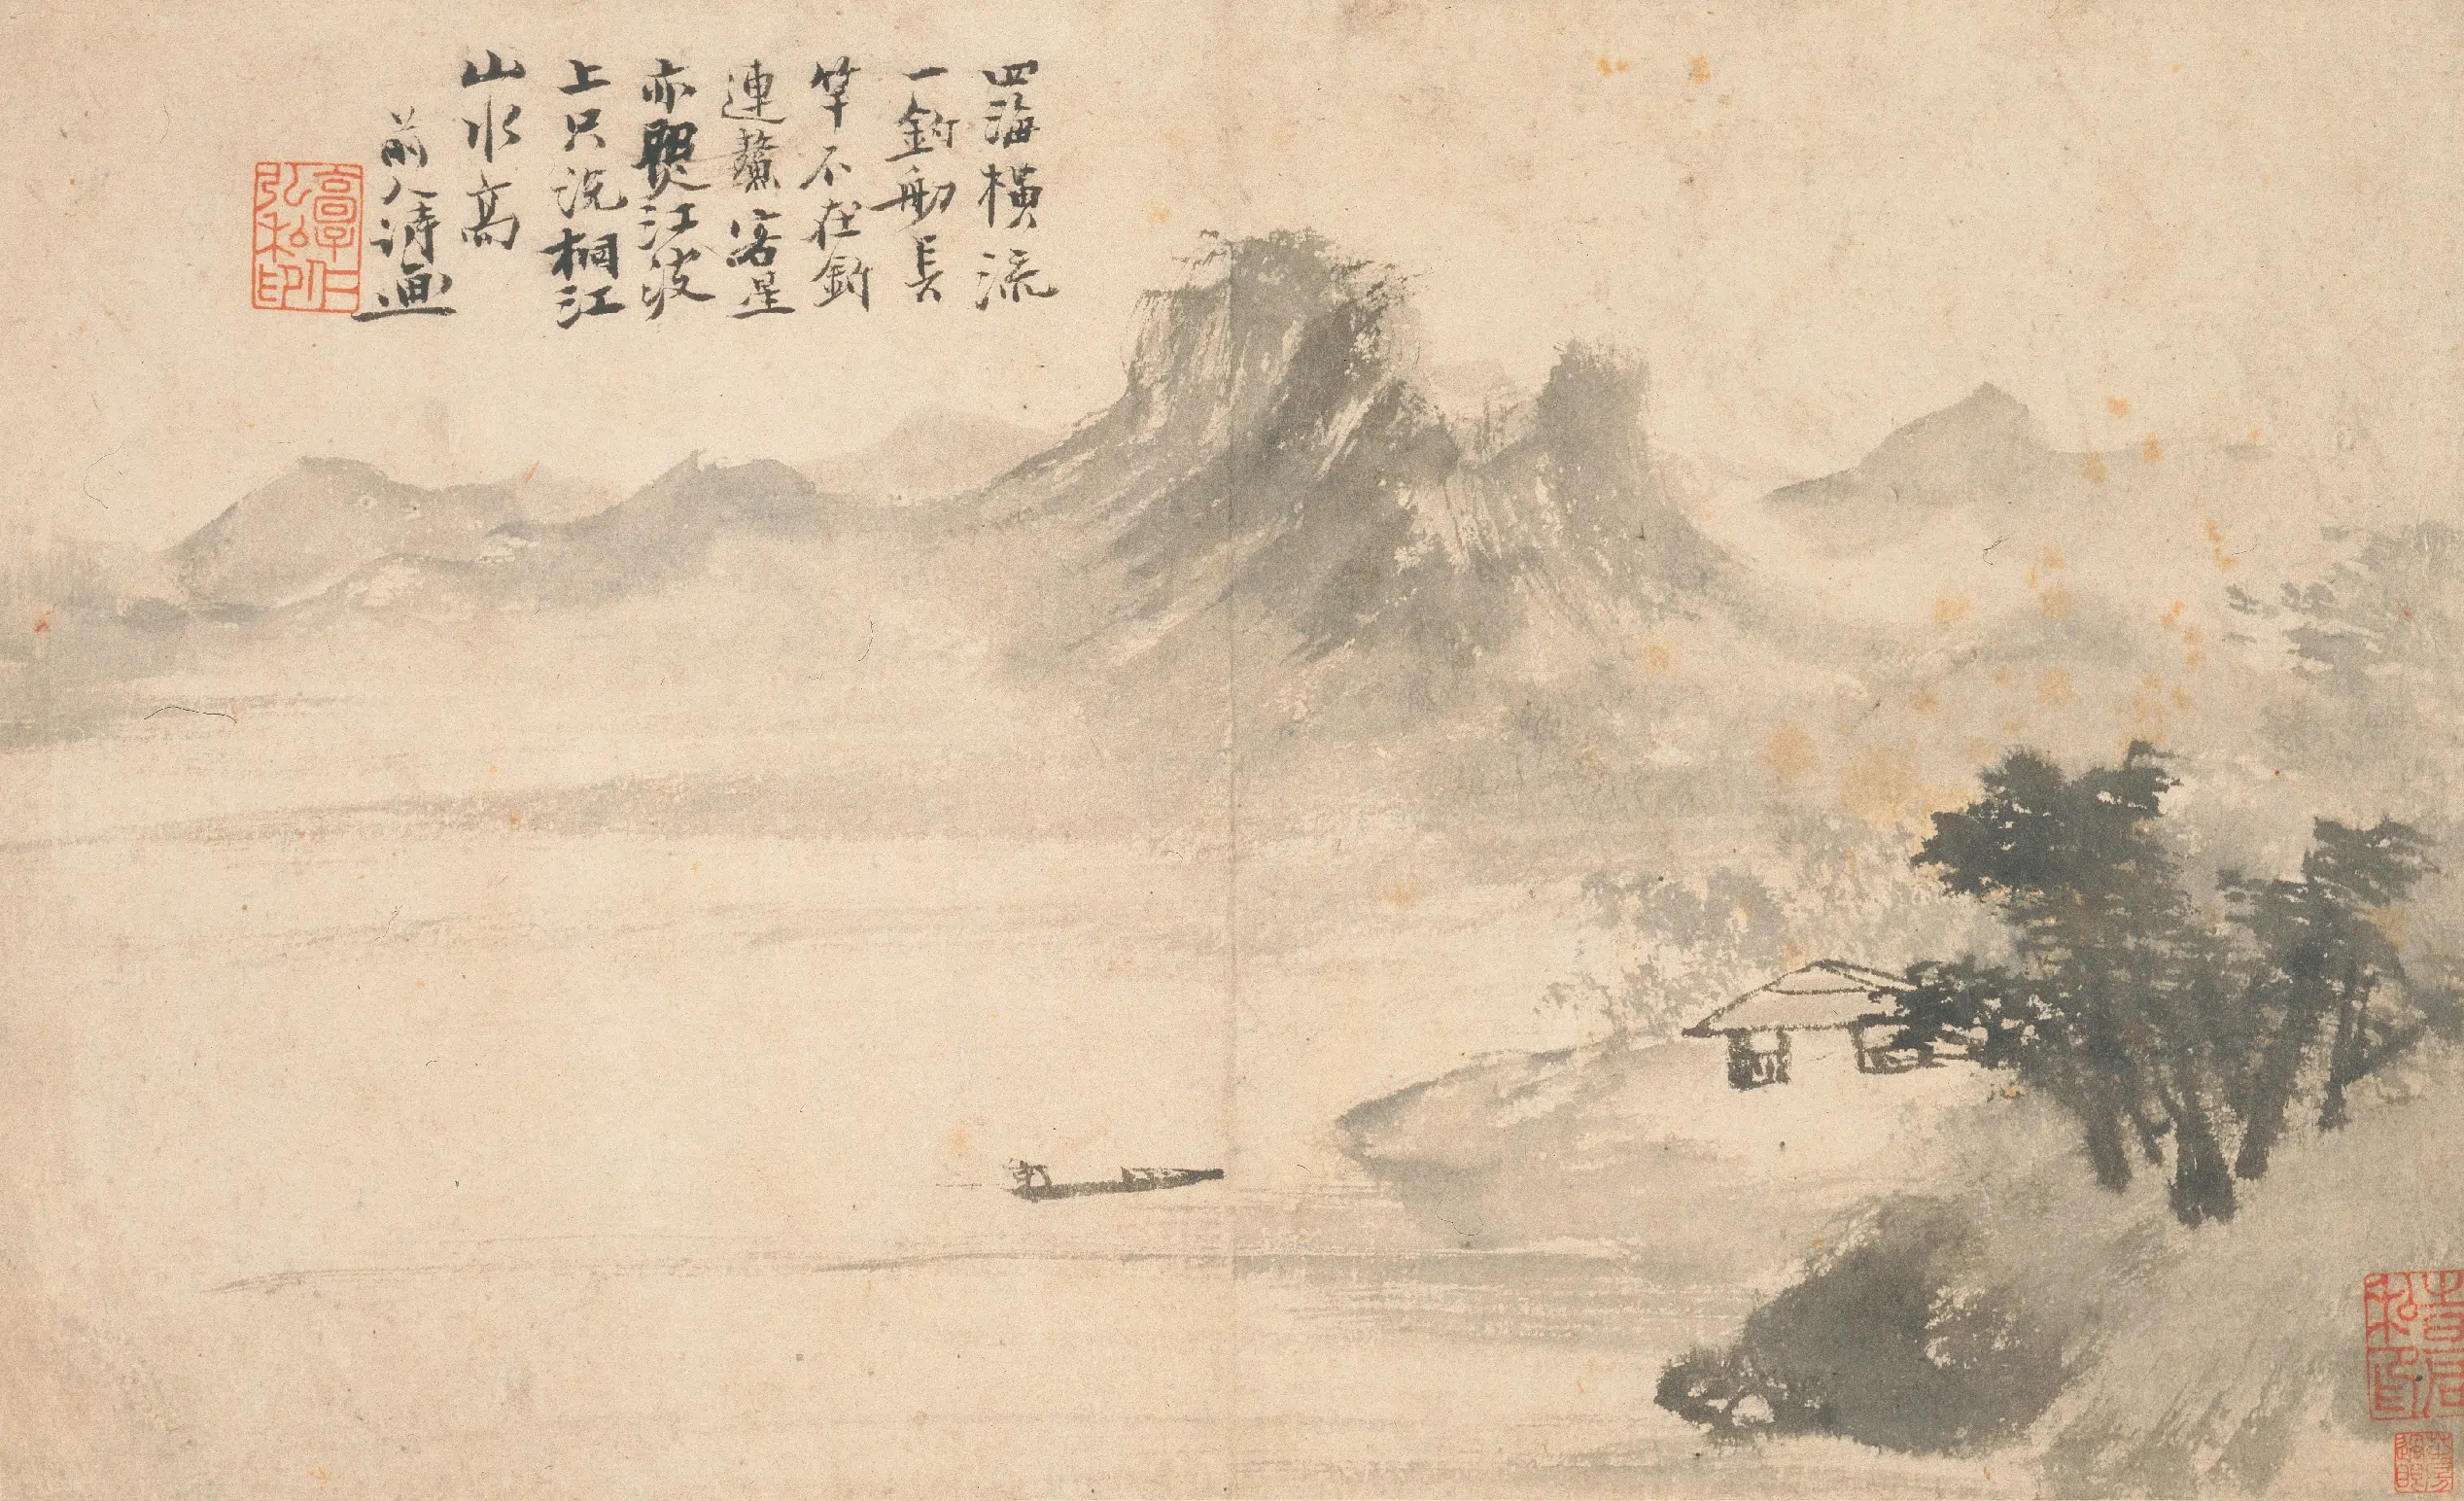 四海橫流
一釣舠長
竿不在釣
連鰲客星
亦照江波
上只説桐江
山水高
前人詩画